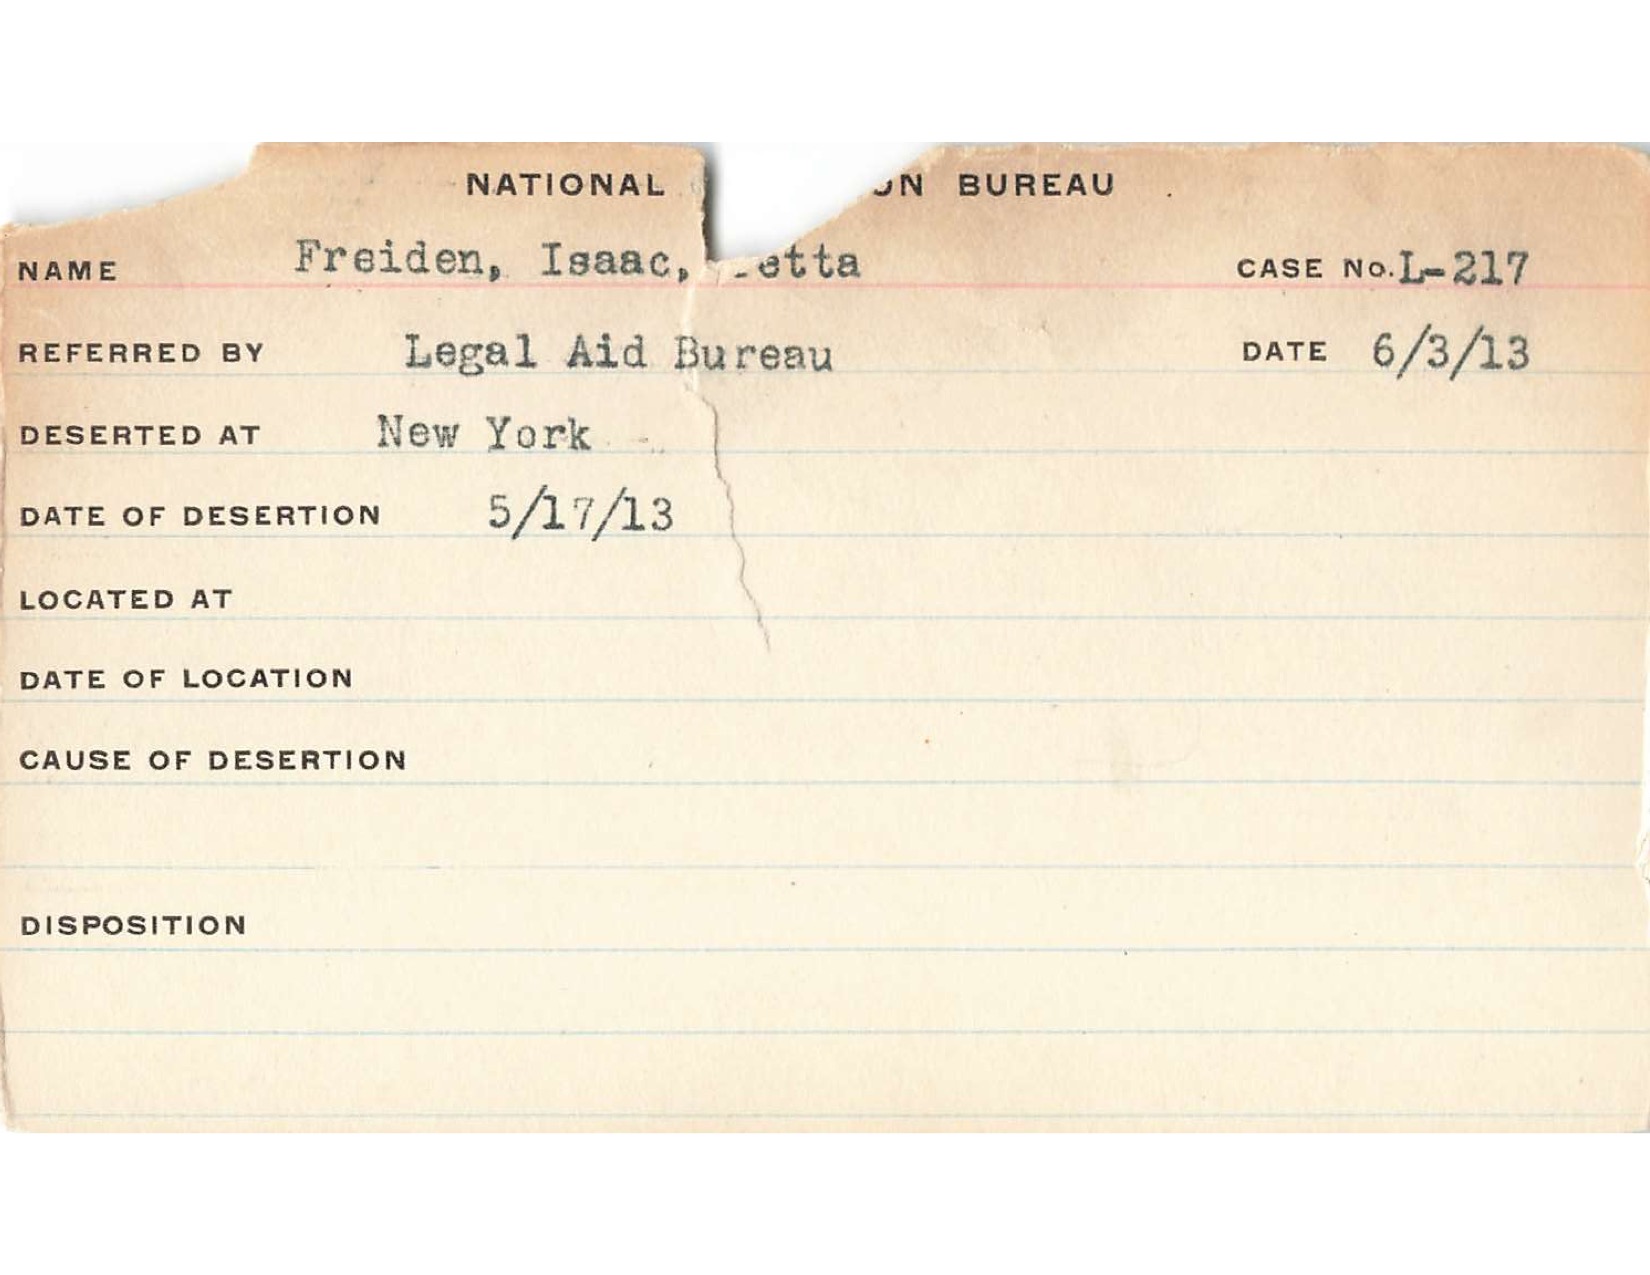 NATIONAL BUREAU
NAME Freiden, Isaac, CASE No. L-217
REFERRED BY Legal Aid Bureau DATE 6/3/13
DESERTED AT New York
DATE OF DESERTION 5/17/13
LOCATED AT
DATE OF LOCATION
CAUSE OF DESERTION
DISPOSITION